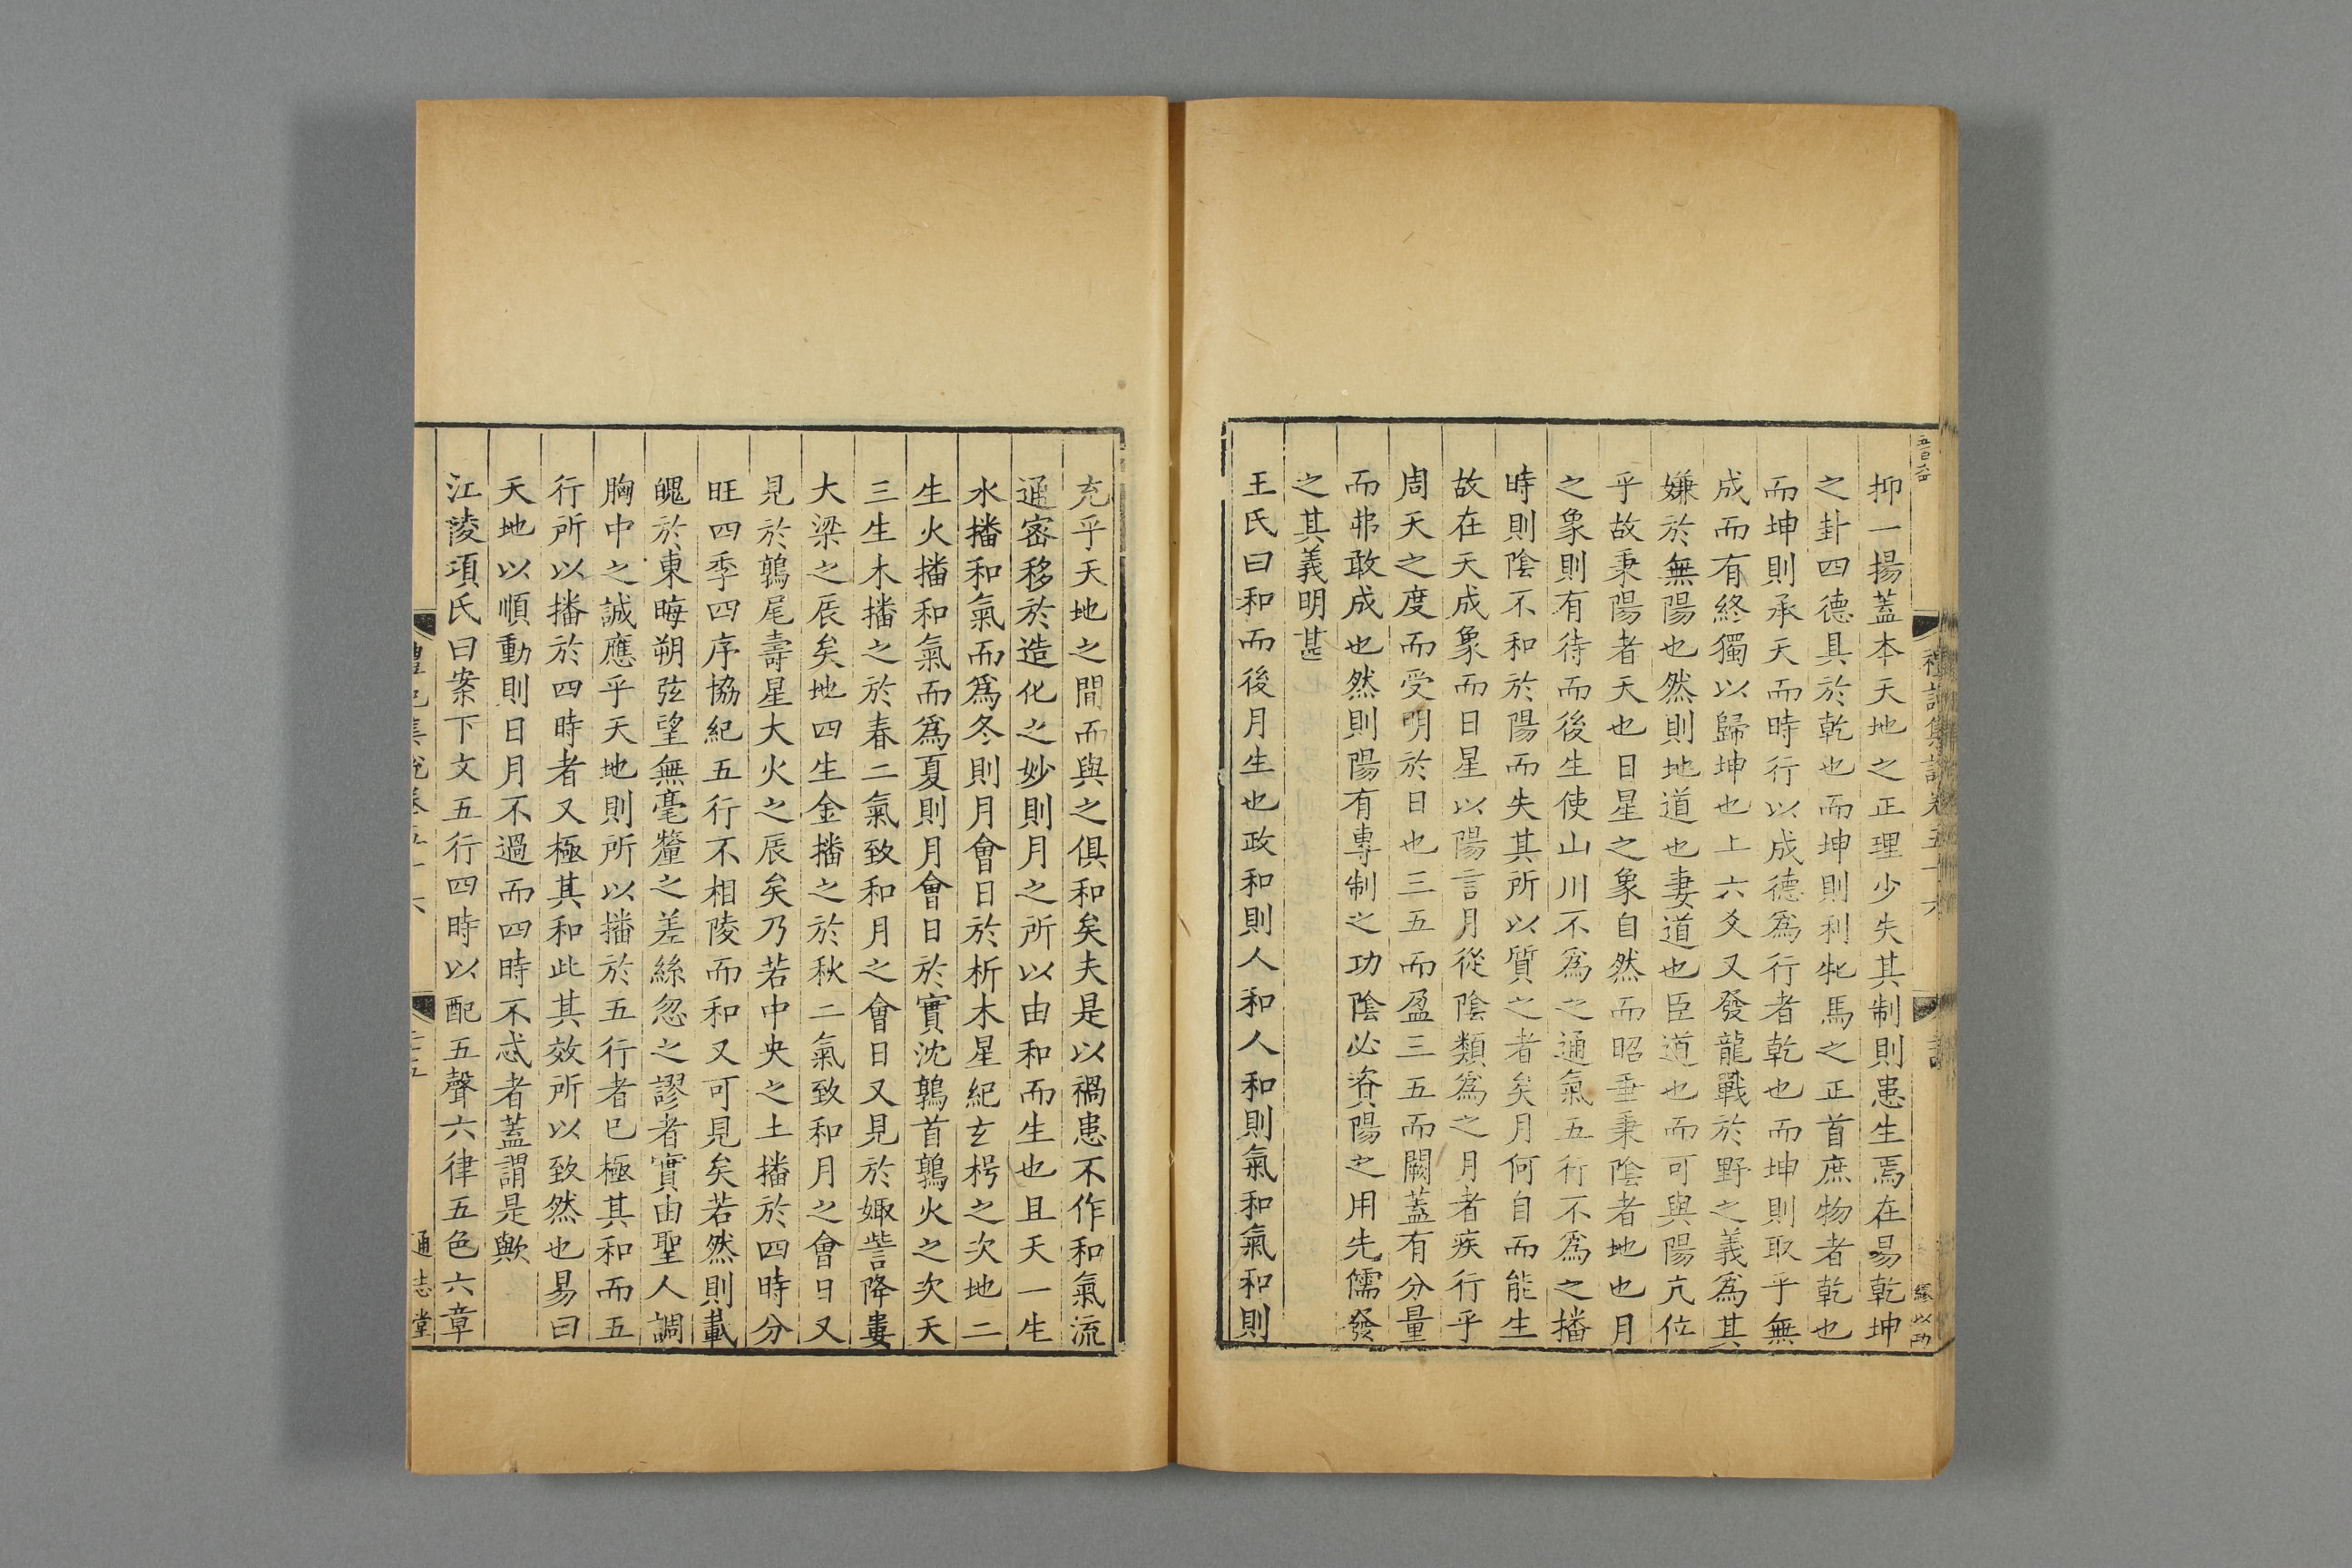 抑一揚蓋本天地之正理少失其制則患生焉在易乾坤
之卦四德具於乾也而坤則利牝馬之正首庶物者乾也
而坤則承天而時行以成德爲行者乾也而坤則取乎無
成而有終獨以歸坤也上六爻又發龍戰於野之義爲其
嫌於無陽也然則地道也妻道也臣道也而可與陽亢位
乎故秉陽者天也日星之象自然而昭垂秉陰者地也月
之象則有待而後生使山川不爲之通氣五行不爲之播
時則陰不和於陽而失其所以質之者矣月何自而能生
故在天成象而日星以陽言月從陰類爲之月者疾行乎
周天之度而受明於日也三五而盈三五而闕蓋有分量
而弗敢成也然則陽有專制之功陰必資陽之用先儒發
之其義明甚
王氏曰和而後月生也政和則人和人和則氣和氣和則
充乎天地之間而與之俱和矣夫是以禍患不作和氣流
通密移於造化之妙則月之所以由和而生也且天一生
水播和氣而爲冬則月會日於析木星紀玄枵之次地二
生火播和氣而爲夏則月會日於實沈鶉首鶉火之次天
三生木播之於春二氣致和月之會日又見於娵訾降婁
大梁之辰矣地四生金播之於秋二氣致和月之會日又
見於鶉尾壽星大火之辰矣乃若中央之土播於四時分
旺四季四序協紀五行不相陵而和又可見矣若然則載
魄於東晦朔弦望無毫釐之差絲忽之謬者實由聖人調
胸中之誠應乎天地則所以播於五行者已極其和而五
行所以播於四時者又極其和此其效所以致然也易曰
天地以順動則日月不過而四時不忒者蓋謂是歟
江陵項氏曰案下文五行四時以配五聲六律五色六章
禮記集說卷五十六
通志堂